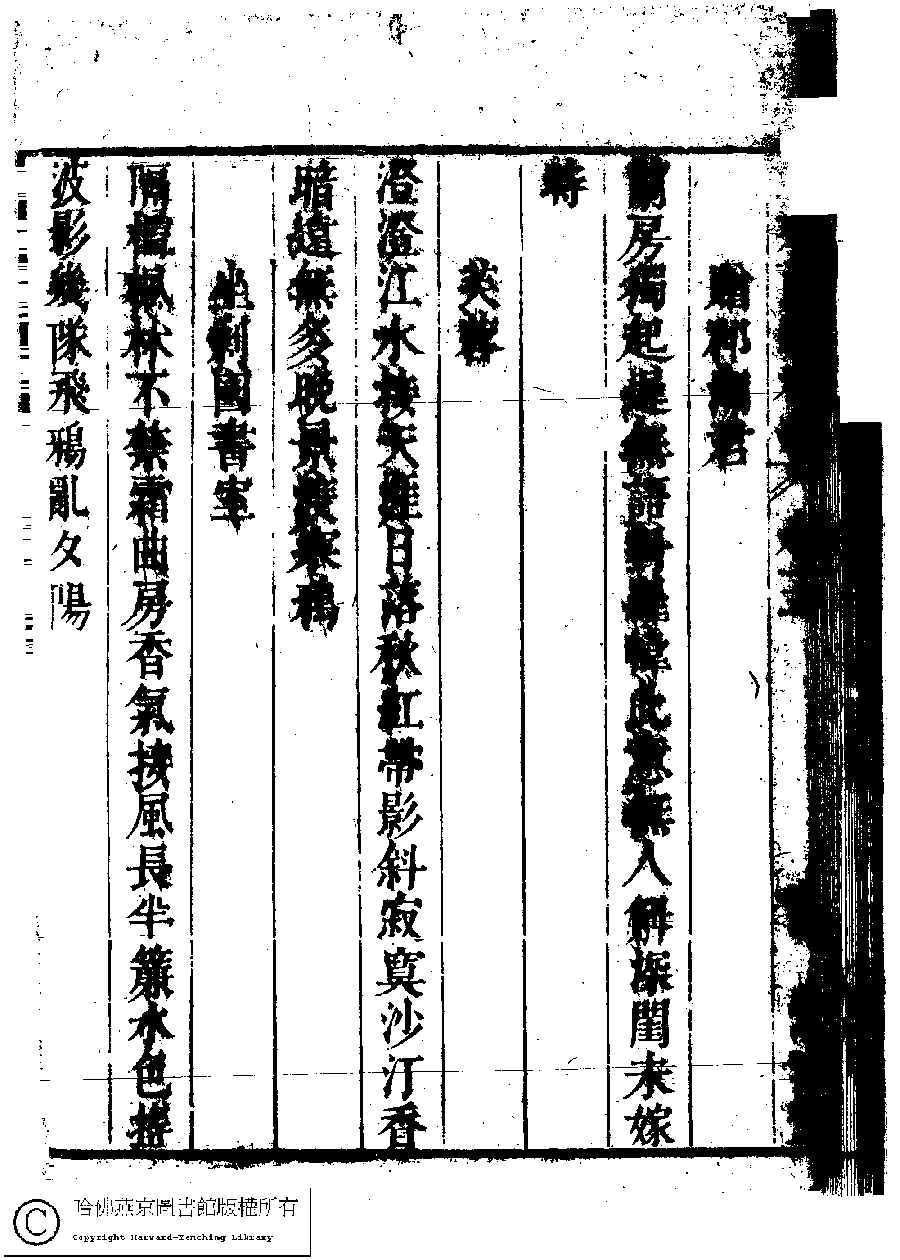 贈郡瀨君
蘭房獨起遲無語對羅幃此意無人解深閨未嫁
時
芙蓉
澄澄江水接天涯日落秋紅帶影斜寂寞沙汀香
暗遠無多晚景襯寒鴉
坐利國書室
隔檻楓林不禁霜曲房香氣挾風長半簾水色搖
波影幾隊飛鴉亂夕陽
哈佛燕京圖書館版權所有
Copyright Harvard-Yenching Library